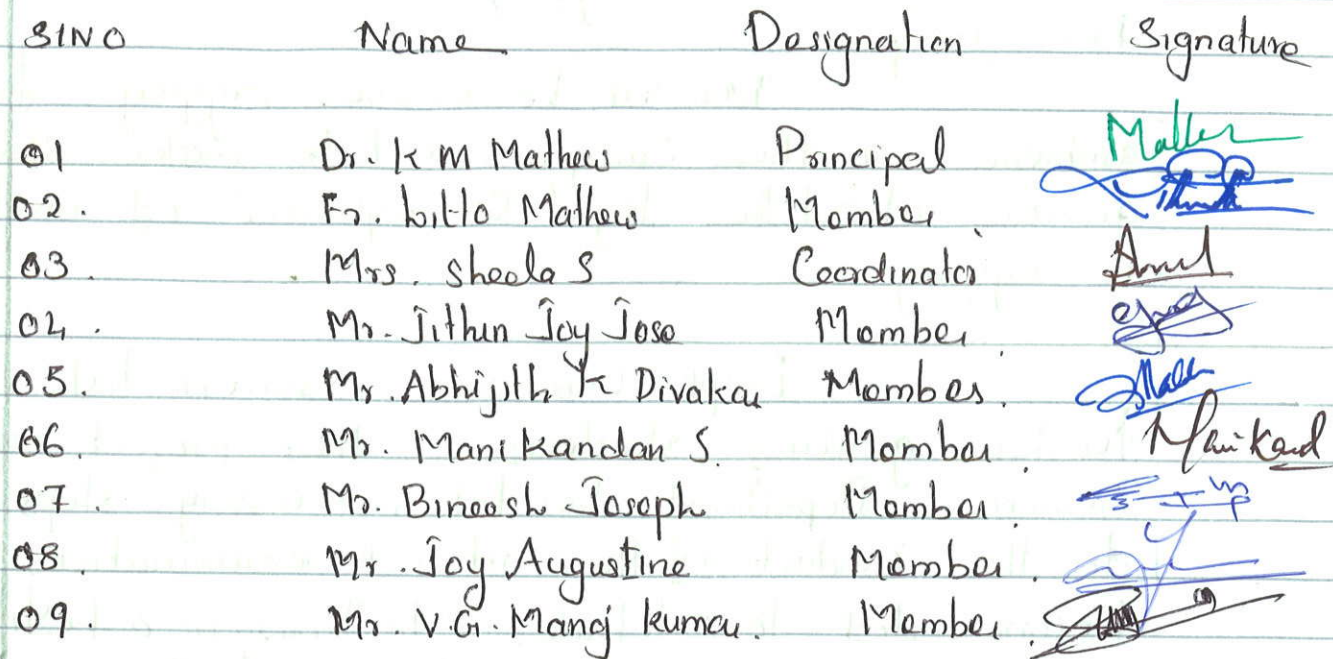 SlNO Name Designation Signature
01 Dr. K M Mathew Principal
02. Fr. Litto Mathew Member
03. Mrs. Sheela S Coordinator
04. Mr. Jithin Joy Jose Member
05. Mr. Abhijith K Divakar Member.
06. Mr. Manikandan S. Member. Manikand
07. Mr. Bineesh Joseph Member.
08. Mr. Joy Augustine Member.
09. Mr. V.G. Manoj kumar. Member.